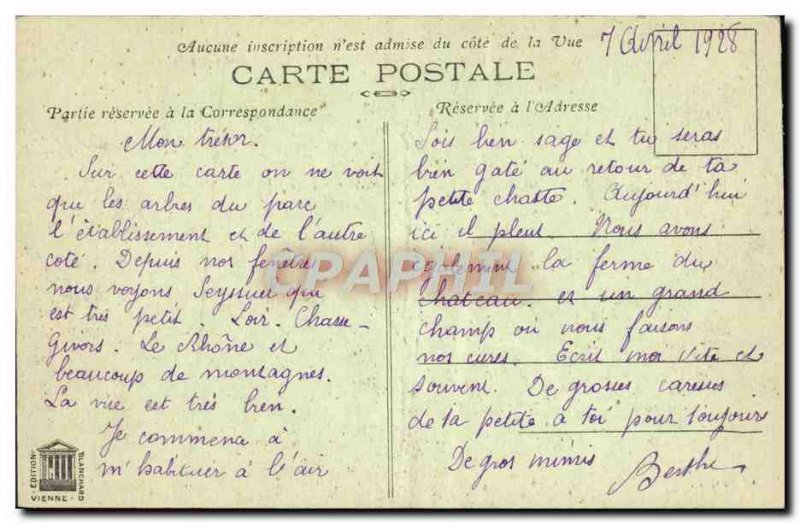 Aucune inscription n'est admise du côté de la Vue
7 Avril 1928
CARTE POSTALE
Partie réservée à la Correspondance
Réservée à l'Adresse
Mon trésor.
Sur cette carte on ne voit
que les arbres du parc
l'établissement et de l'autre
coté. Depuis nos fenêtres
nous voyons Seyssuel qui
est très petit. Loir. Chasse-
Givors. Le Rhône et
beaucoup de montagnes.
La vue est très bien.
Je commence à
m'habituer à l'air
Sois bien sage et tu seras
bien gaté au retour de ta
petite chatte. Aujourd'hui
ici il pleut. Nous avons
également la ferme du
chateau. et un grand
champ où nous faisons
nos cures. Ecrit moi vite et
souvent. De grosses caresses
de ta petite à toi pour toujour
De gros mimis
Berthe
CPAPHIL
EDITION
BLANCHARD
VIENNE